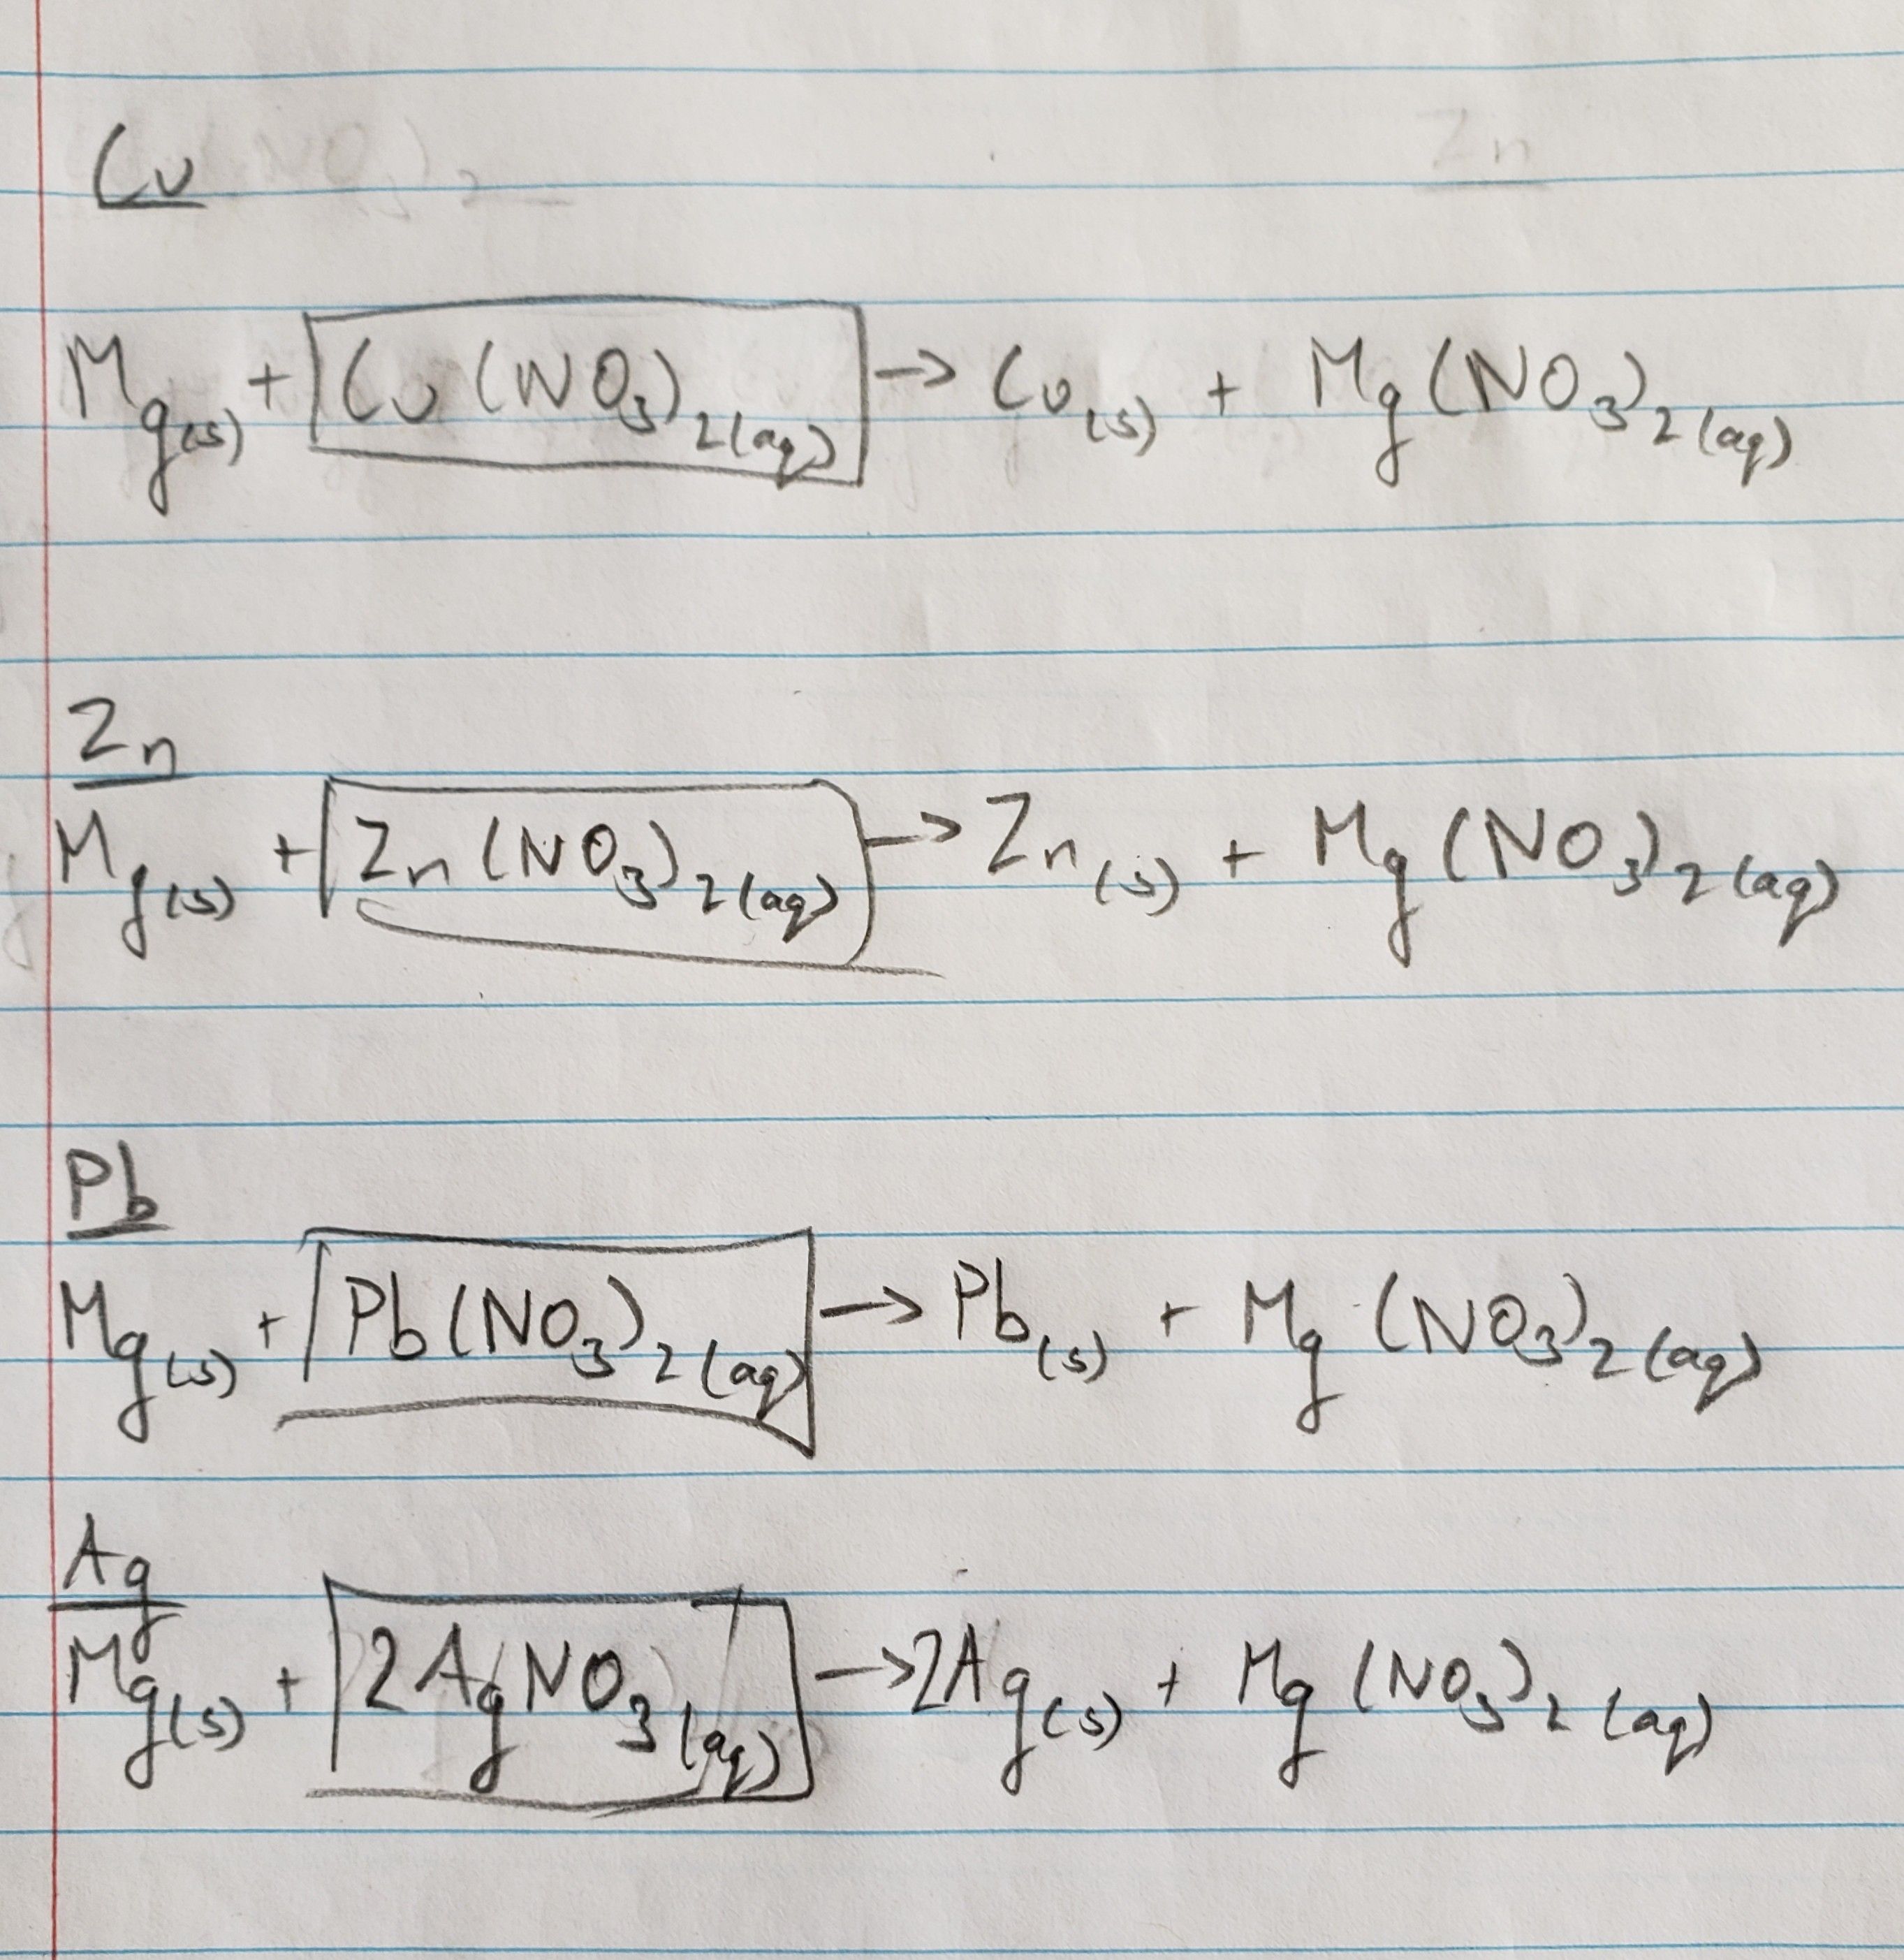 Cu
Mg(s) + Cu(NO₃)₂(aq) → Cu(s) + Mg(NO₃)₂(aq)
Zn
Mg(s) + Zn(NO₃)₂(aq) → Zn(s) + Mg(NO₃)₂(aq)
Pb
Mg(s) + Pb(NO₃)₂(aq) → Pb(s) + Mg(NO₃)₂(aq)
Ag
Mg(s) + 2AgNO₃(aq) → 2Ag(s) + Mg(NO₃)₂(aq)